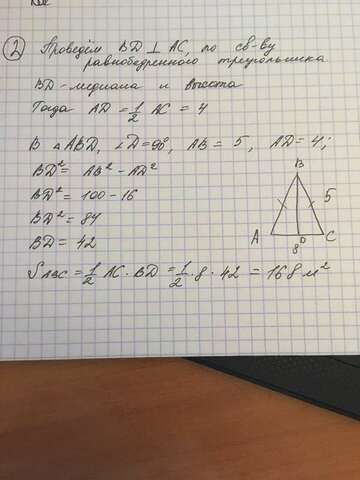 ② Проведём BD ⊥ AC, по св-ву
равнобедренного треугольника
BD - медиана и высота
Тогда AD = 1/2 AC = 4
В △ABD, ∠D = 90°, AB = 5, AD = 4;
BD² = AB² - AD²
BD² = 100 - 16
BD² = 84
BD = 42
B
5
A
D
C
8
S ABC = 1/2 AC · BD = 1/2 · 8 · 42 = 168 м²